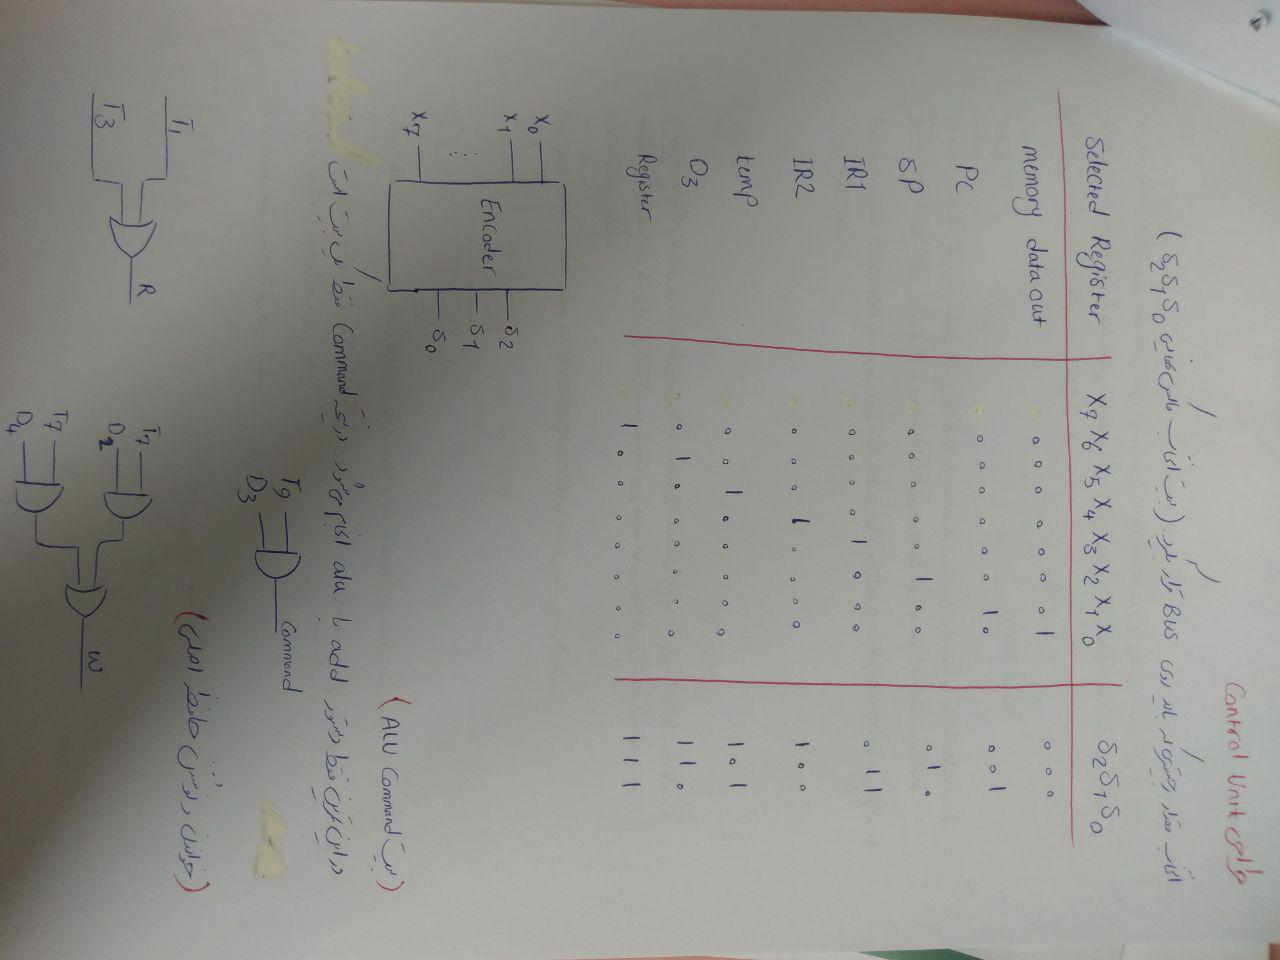 طراحی Control Unit
انتخاب مقدار رجیستری که باید روی Bus قرار بگیرد. (بیت انتخاب مالکس نهایی S2S1S0)
Selected Register X7 X6 X5 X4 X3 X2 X1 X0 S2S1S0
memory data out 0 0 0 0 0 0 0 1 0 0 0
PC 0 0 0 0 0 0 1 0 0 0 1
SP 0 0 0 0 0 1 0 0 0 1 0
IR1 0 0 0 0 1 0 0 0 0 1 1
IR2 0 0 0 1 0 0 0 0 1 0 0
temp 0 0 1 0 0 0 0 0 1 0 1
O3 0 1 0 0 0 0 0 0 1 1 0
Register 1 0 0 0 0 0 0 0 1 1 1
X0
X1
⋮
X7
Encoder
S2
S1
S0
(بیت ALU Command)
در این تمرین فقط دستور add با alu انجام می‌شود. در نتیجه Command فقط یک بیت است
T9
D3
Command
(خواندن و نوشتن حافظه اصلی)
T1
T3
R
T7
D2
T7
D4
W